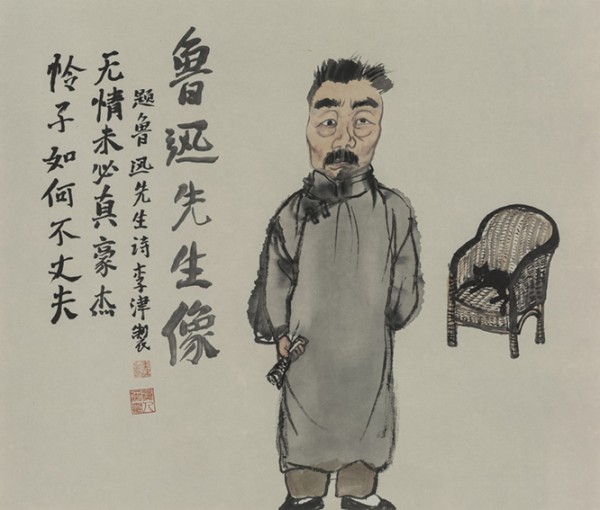 鲁迅先生像
题鲁迅先生诗李津製
无情未必真豪杰
怜子如何不丈夫